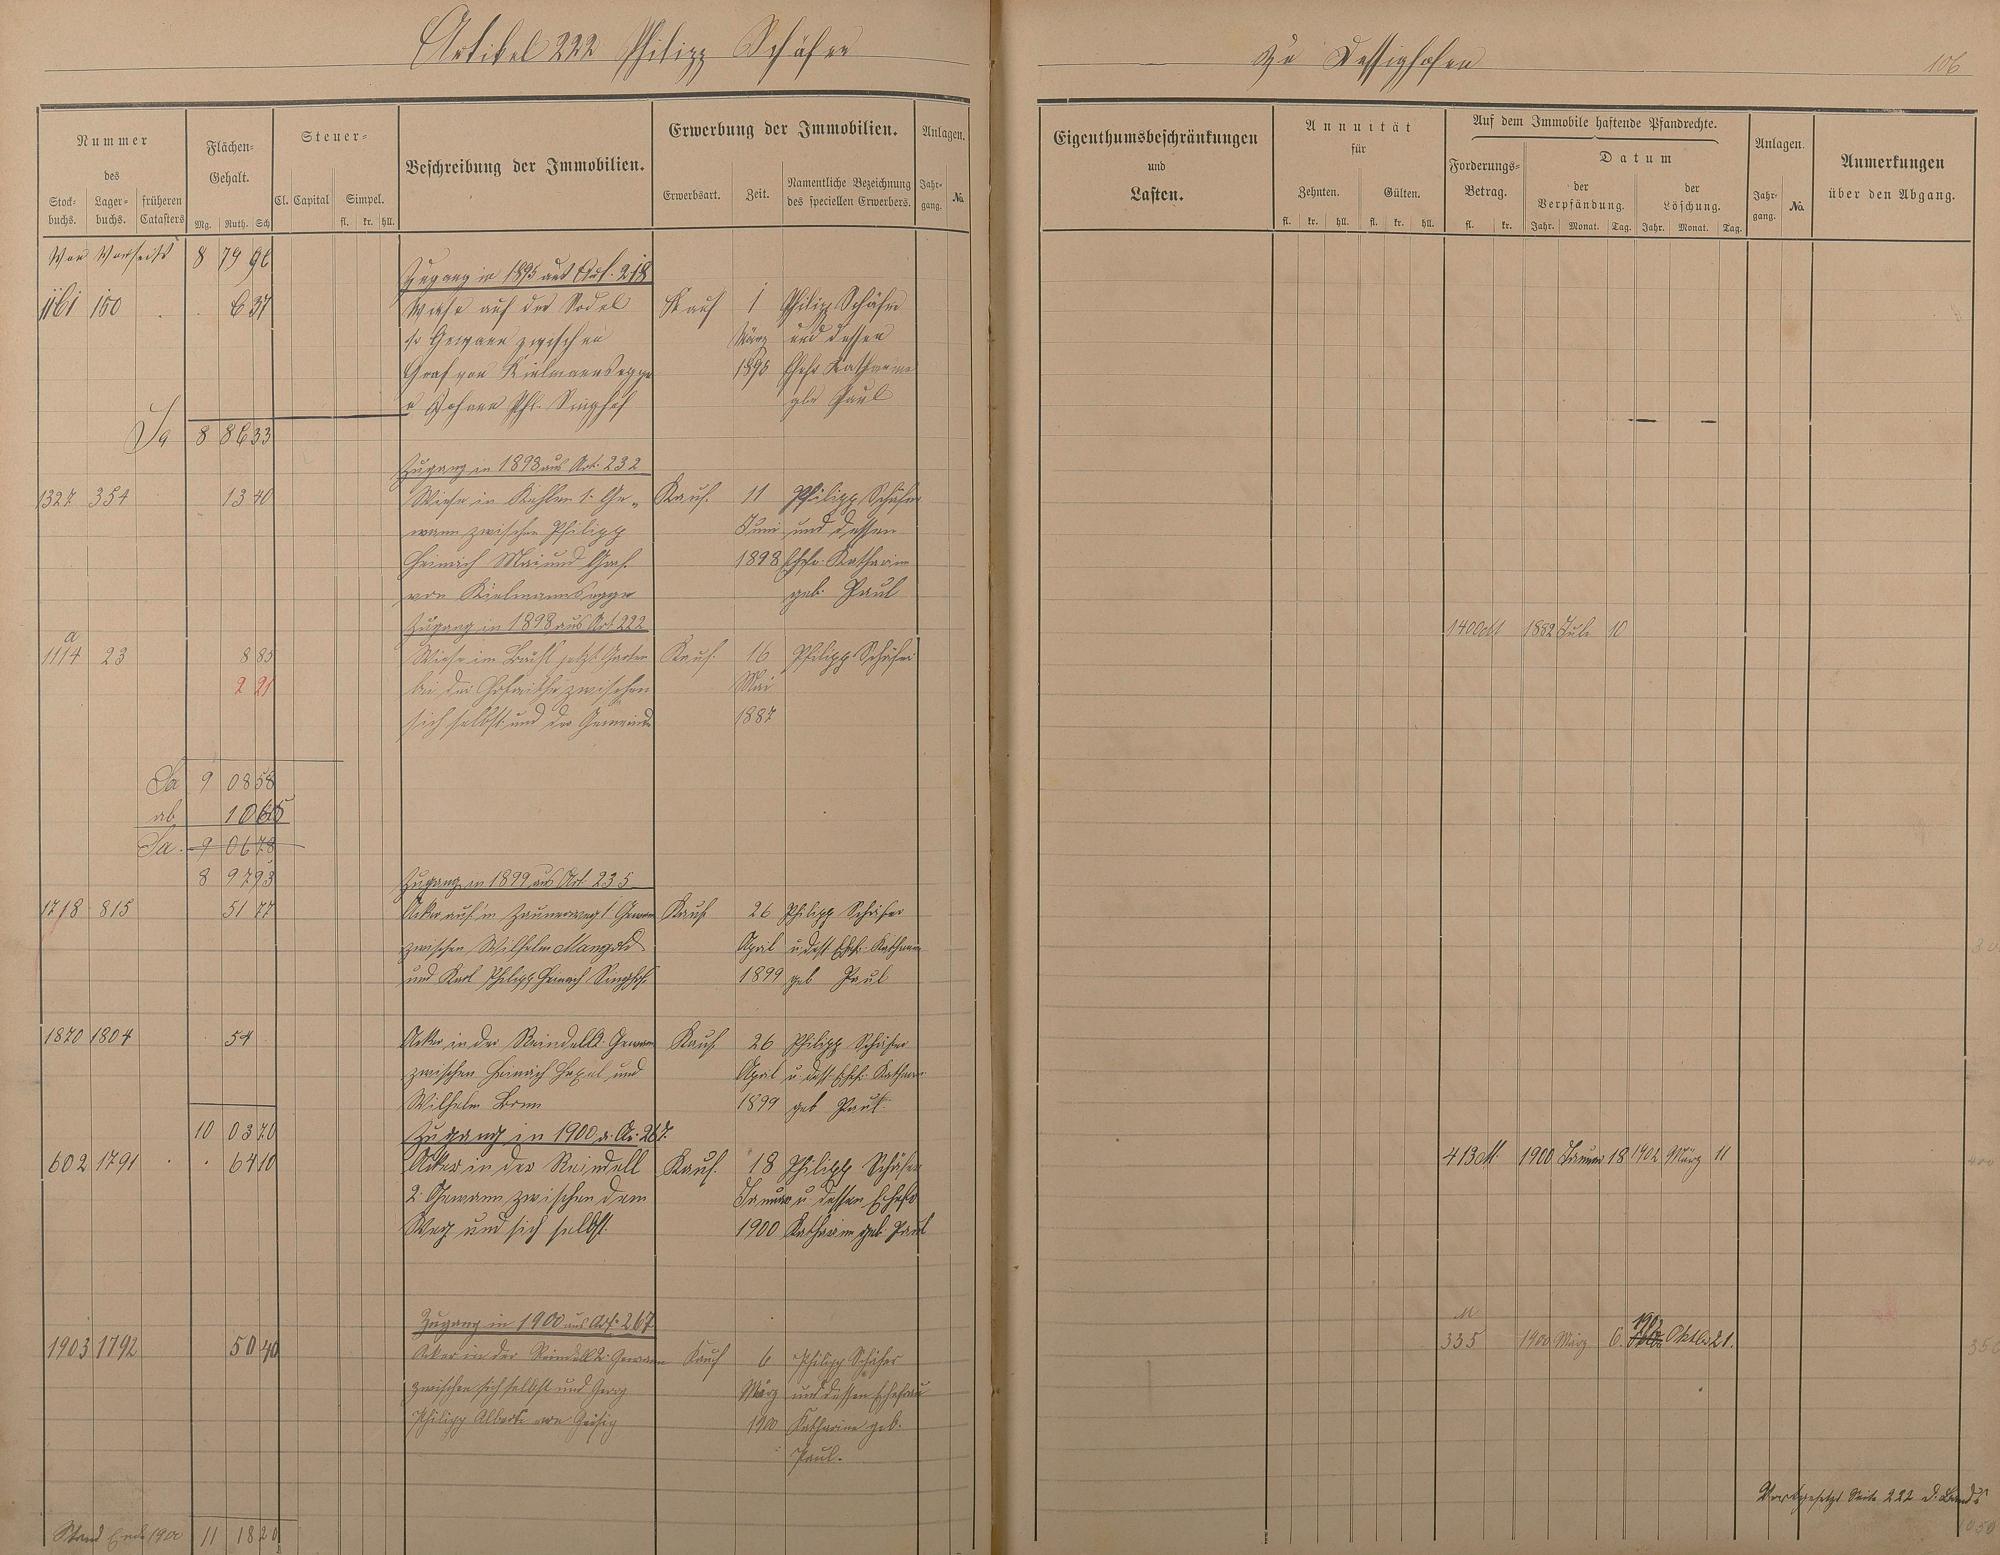 Artikel 222 Philipp Schäfer
zu Dessighofen
106
Nummer
des
Stock-
buchs.
Lager-
buchs.
früheren
Catasters
Flächen-
Gehalt.
Mg. Ruth. Sch
Steuer-
Cl. Capital Simpel.
fl. kr. hll.
Beschreibung der Immobilien.
Erwerbung der Immobilien.
Erwerbsart. Zeit.
Namentliche Bezeichnung
des speciellen Erwerbers.
Anlagen.
Jahr-
gang.
No.
Eigenthumsbeschränkungen
und
Lasten.
Annuität
für
Zehnten. Gülten.
fl. kr. hll. fl. kr. hll.
Auf dem Immobile haftende Pfandrechte.
Forderungs-
Betrag.
fl. kr.
Datum
der
Verpfändung.
der
Löschung.
Jahr. Monat. Tag. Jahr. Monat. Tag.
Anlagen.
Jahr-
gang.
No.
Anmerkungen
über den Abgang.
Von Vorseite 8 79 96
Zugang in 1895 aus Art. 218
1161 150 . . 6 37 Wiese auf der Sodel Kauf 1 Philipp Schäfer
Gewann zwischen März und dessen
Graf von Kielmannsegge 1895 Ehefr Katharina
u Johann Phl. Singhof geb Paul
Sa 8 86 33
Zugang in 1898 aus Art. 232
1327 354 13 40 Wiese in Kehlen 1. Ge- Kauf. 11 Philipp Schäfer
wann zwischen Philipp Juni und dessen
Heinrich Mai und Graf. 1898 Ehefr. Katharine
von Kielmannsegge geb. Paul
Zugang in 1898 aus Art. 222
1400 M 1882 Juli 10
a
1114 23 8 85 Wiese im jetzt Garten Kauf. 16 Philipp Schäfer
2 21 bei der zwischen Mai
sich selbst und der Gemeinde 1887
Sa 9 08 58
ab 10 65
Sa. 9 06 78
8 97 93
Zugang in 1899 aus Art. 235
1718 815 51 77 Acker auf'm Zaunerweg 1 Gewann Kauf 26 Philipp Schäfer
zwischen Wilhelm Mangold April u. dess. Ehefr. Katharin
und Karl Philipp Heinrich Singhof. 1899 geb Paul
1870 1804 54 Acker in der Reindell 2. Gewann Kauf 26 Philipp Schäfer
zwischen Heinrich und April u. dess. Ehefr. Katharin
Wilhelm 1899 geb Paul.
10 03 70
Zugang in 1900 a. Ar. 267.
602 1791 . . 64 10 Acker in der Reindell Kauf. 18 Philipp Schäfer 413 M. 1900 Januar 18 1902 März 11
2. Gewann zwischen dem Januar u. dessen Ehefr
Weg und sich selbst 1900 Katharine geb. Paul
Zugang in 1900 aus Art. 267
M 1902
1903 1792 50 40 Acker in der Reindell 2. Gewann Kauf 6 Philipp Schäfer 335 1900 März 6. Oktbr 21.
zwischen sich selbst und Georg März und dessen Ehefrau
Philipp Alberti von Geisig 1900 Katharine geb.
Paul.
Fortgesetzt Seite 222 d. Bands
Stand Ende 1900 11 18 20